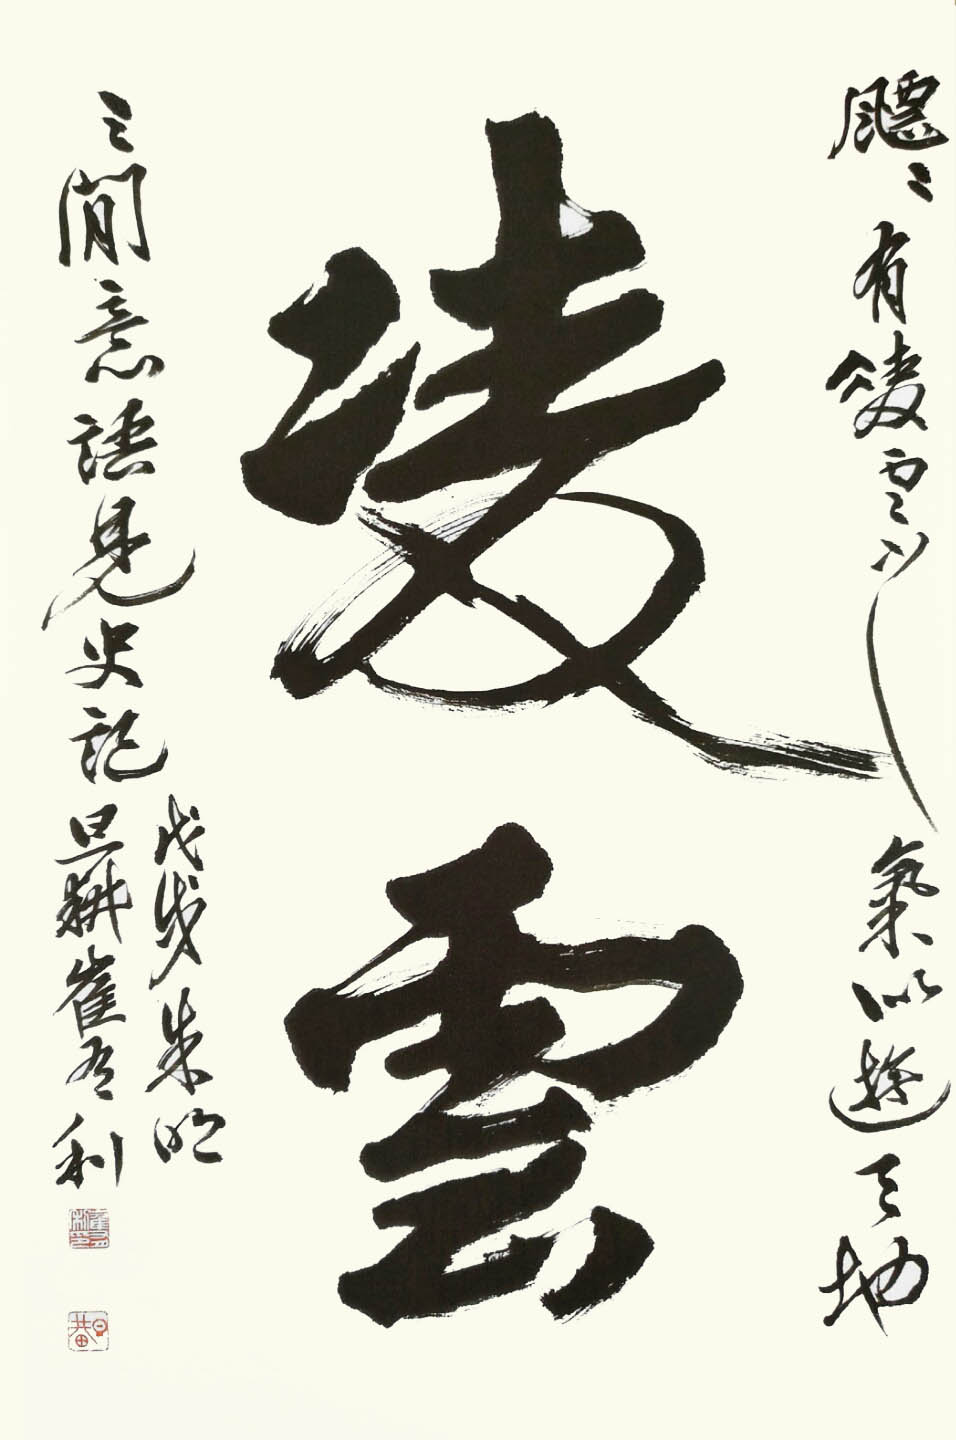 飄〻有凌雲之氣似遊天地
凌雲
之間意語見史記
戊戌朱明
旦耕崔利